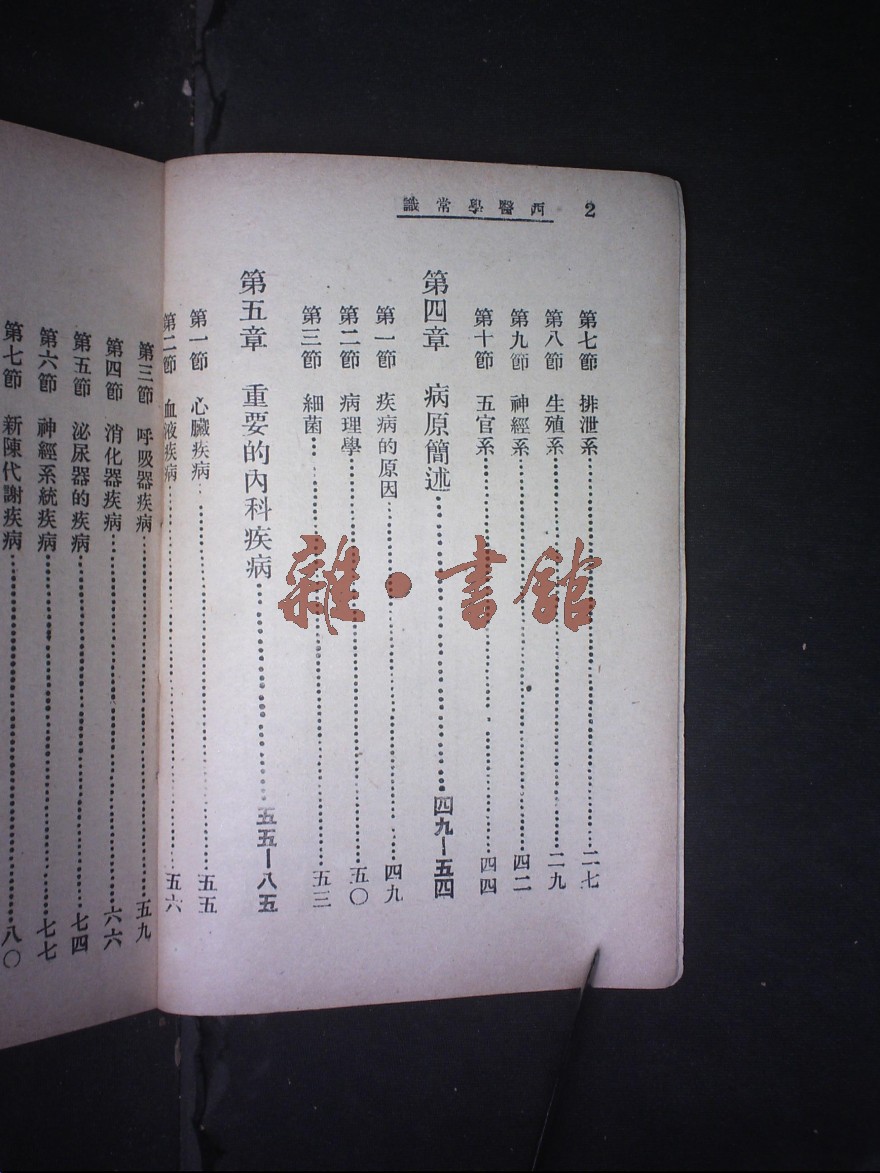 2 西醫學常識
第七節 排泄系……二七
第八節 生殖系……二九
第九節 神經系……四二
第十節 五官系……四四
第四章 病原簡述……四九—五四
第一節 疾病的原因……四九
第二節 病理學……五〇
第三節 細菌……五三
第五章 重要的內科疾病……五五—八五
第一節 心臟疾病……五五
第二節 血液疾病……五六
第三節 呼吸器疾病……五九
第四節 消化器疾病……六六
第五節 泌尿器的疾病……七四
第六節 神經系統疾病……七七
第七節 新陳代謝疾病……八〇
雜·書館